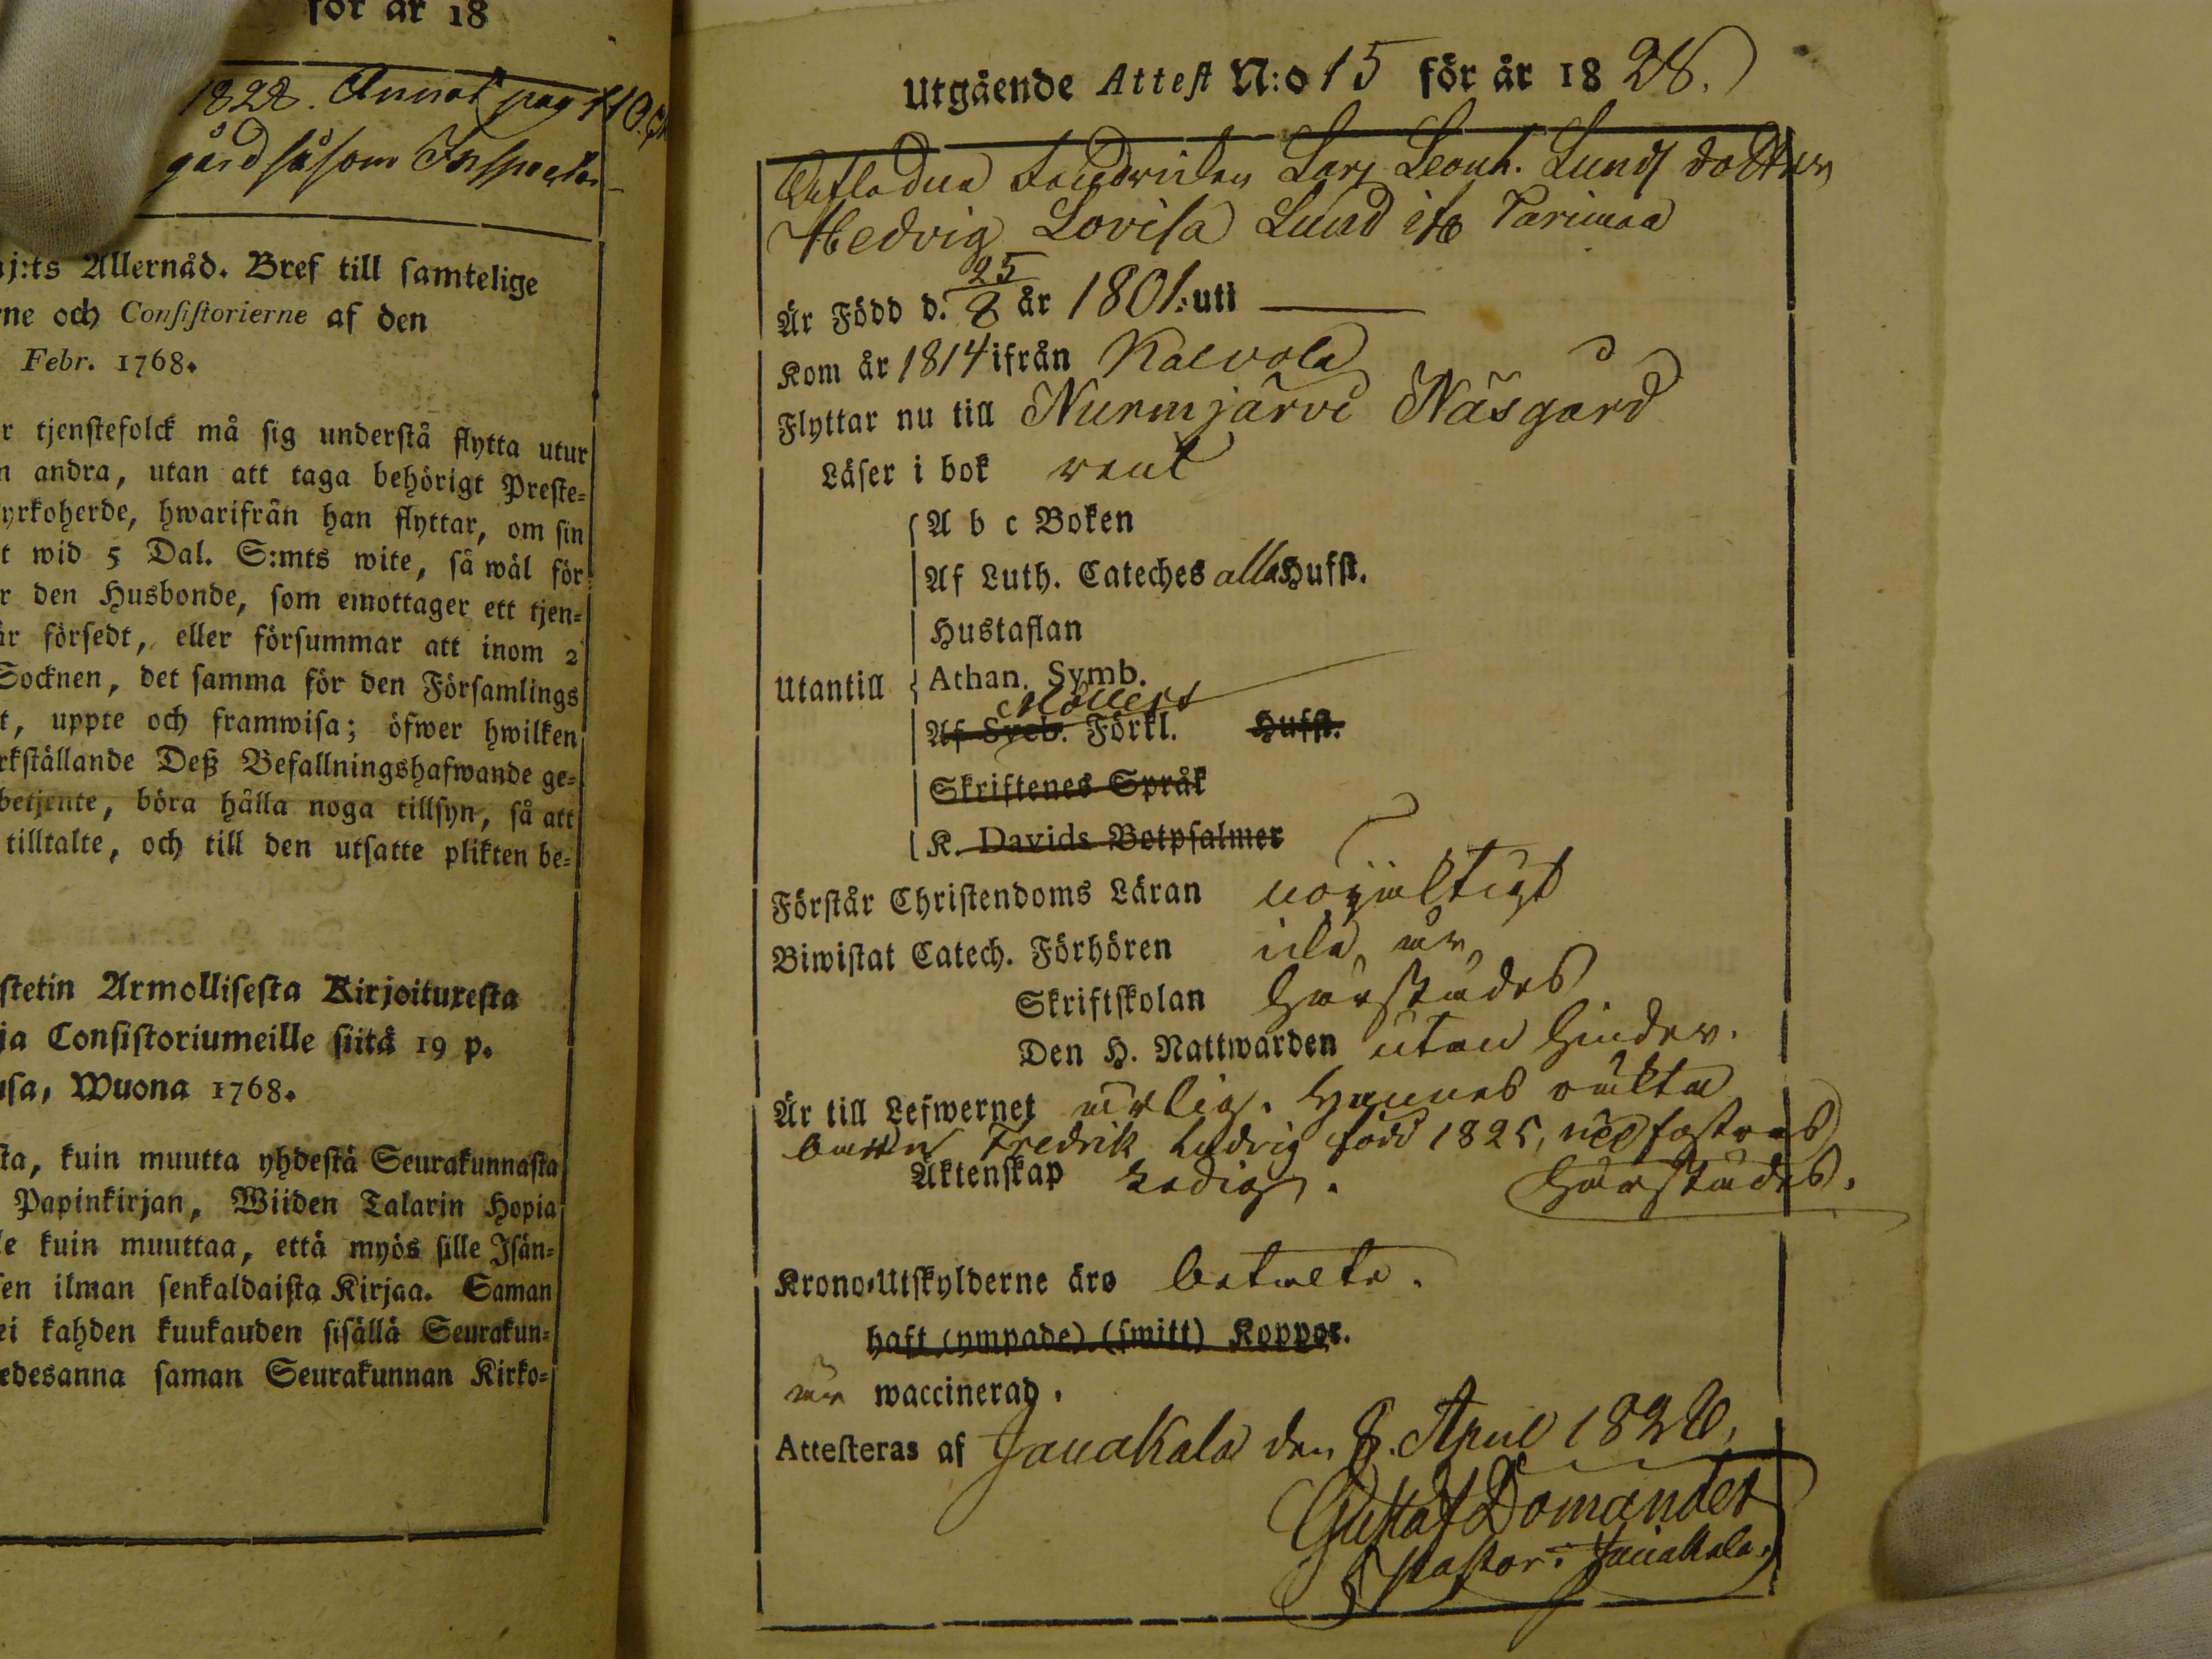 för år 18
1828. Annot. pag 110.
gård såsom Inspector
j:ts Allernåd. Bref till samtelige
rne och Consistorierne af den
Febr. 1768.
r tjenstefolck må sig understå flytta utur
n andra, utan att taga behörigt Preste-
yrkoherde, hwarifrån han flyttar, om sin
t wid 5 Dal. S:mts wite, så wäl för
r den Husbonde, som emottager ett tjen-
är försedt, eller försummar att inom 2
Socknen, det samma för den Församlings
t, uppte och framwisa; öfwer hwilken
rkställande Deß Befallningshafwande ge-
betjente, böra hålla noga tillsyn, så att
tilltalte, och till den utsatte plikten be-
stetin Armollisesta Kirjoituxesta
ja Consistoriumeille siitä 19 p.
usa, Wuona 1768.
sta, kuin muutta yhdestä Seurakunnasta
Papinkirjan, Wiiden Talarin Hopia
le kuin muuttaa, että myös sille Isän-
sen ilman senkaldaista Kirjaa. Saman
ei kahden kuukauden sisällä Seurakun-
edesanna saman Seurakunnan Kirko-
Utgående Attest N:o 15 för år 1828.
Afledne Lars Leonh. Lunds dotter
Hedvig Lovisa Lund ifr Tarimaa
Är Född d. 25/8 år 1801. uti
Kom år 1814 ifrån Kalvola
Flyttar nu till Nurmjärvi Näsgård
Läser i bok rent
A b c Boken
Af Luth. Cateches alla Hufst.
Hustaflan
Utantill Athan. Symb.
Möllers
Af Sveb. Förkl. Hufst.
Skriftenes Språk
K. Davids Botpsalmer
Förstår Christendoms Läran nöjaktigt
Biwistat Catech. Förhören
Skriftskolan härstädes
Den H. Nattwarden utan hinder.
Är till Lefwernet ärlig. Hennes oäkta
barn Fredrik Ludvig född 1825, uppfostras
Äktenskap Ledig. härstädes.
Krono-Utskylderne äro betalte.
haft (ympade) (smitt) Koppor.
är waccinerad.
Attesteras af Janakala den 8. April 1828.
Gustaf Domander
Pastor i Janakala.